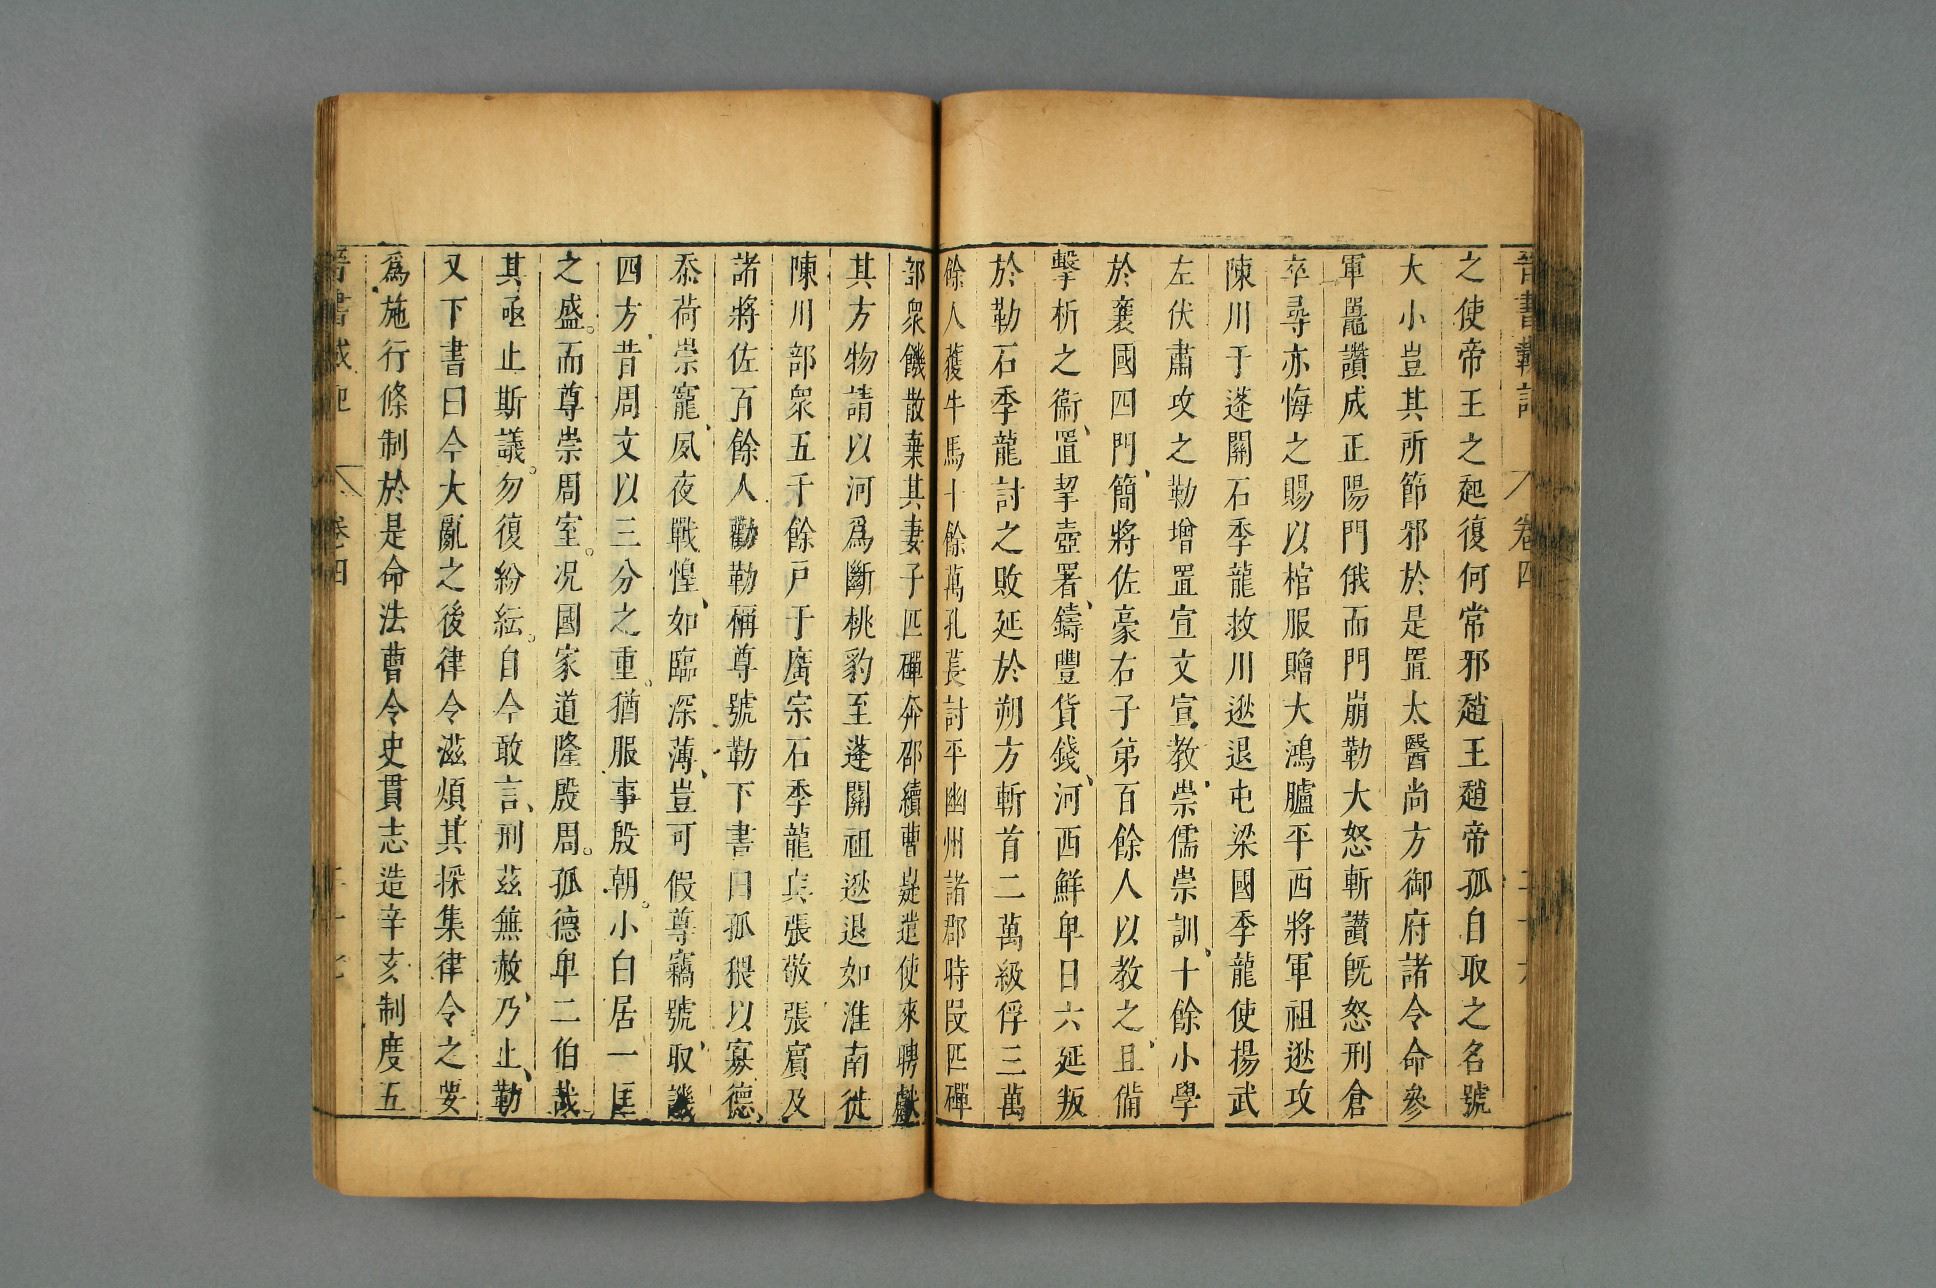 晉書載記 卷四
之使帝王之起復何常邪趙王趙帝孤自取之名號
大小豈其所節邪於是置太醫尚方御府諸令命參
軍鼂讚成正陽門俄而門崩勒大怒斬讚旣怒刑倉
卒尋亦悔之賜以棺服贈大鴻臚平西將軍祖逖攻
陳川于蓬關石季龍救川逖退屯梁國季龍使揚武
左伏肅攻之勒增置宣文宣教崇儒崇訓十餘小學
於襄國四門簡將佐豪右子弟百餘人以教之且備
擊柝之衞置挈壺署鑄豐貨錢河西鮮卑日六延叛
於勒石季龍討之敗延於朔方斬首二萬級俘三萬
餘人獲牛馬十餘萬孔萇討平幽州諸郡時段匹磾
部衆饑散棄其妻子匹磾奔邵續曹嶷遣使來聘獻
其方物請以河爲斷桃豹至蓬關祖逖退如淮南徙
陳川部衆五千餘戶于廣宗石季龍與張敬張賓及
諸將佐百餘人勸勒稱尊號勒下書曰孤猥以寡德
忝荷崇寵夙夜戰惶如臨深薄豈可假尊竊號取譏
四方昔周文以三分之重猶服事殷朝小白居一匡
之盛而尊崇周室况國家道隆殷周孤德卑二伯哉
其亟止斯議勿復紛紜自今敢言刑茲無赦乃止勒
又下書曰今大亂之後律令滋煩其採集律令之要
爲施行條制於是命法曹令史貫志造辛亥制度五
晉書載記 卷四